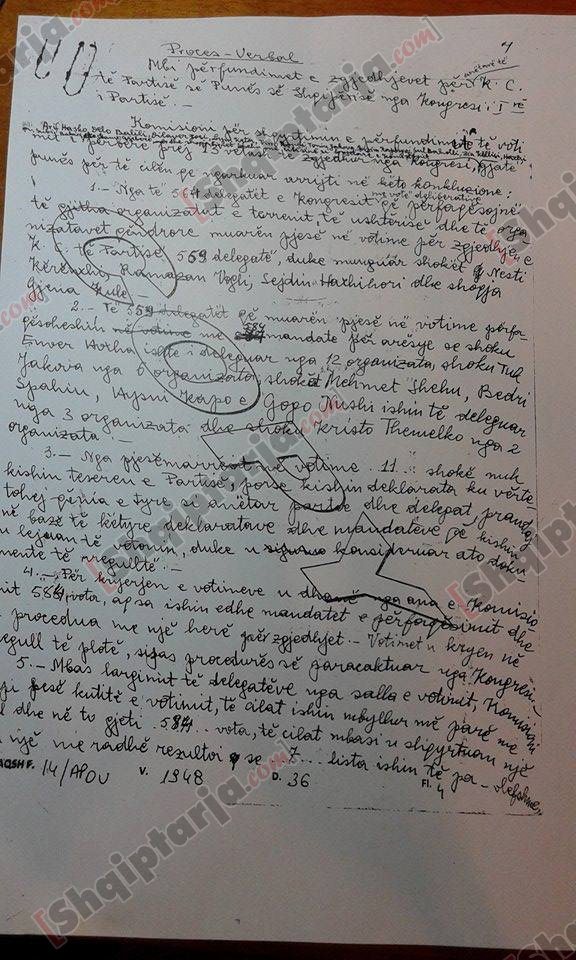 4
Proces-Verbal
Mbi përfundimet e zgjedhjevet për anëtarë të K. C.
të Partisë se Punës së Shqipërisë nga Kongresi i I rë
i Partisë. –
Komisioni për shqyrtimin e përfundimit të voti
mit, përbërë prej 13 vetash të zgjedhur nga Kongresi, gjatë
punës për të cilën qe ngarkuar arrijti në këto konkluzione:
1.- Nga të 564 delegatët e Kongresit me votë deliberative që përfaqësojnë
të gjitha organizatat e terrenit, të ushtërisë dhe të orga
nizatavet qëndrore muarën pjesë në votime për zgjedhjen e
K. C. të Partisë, 559 delegatë, duke munguar shokët Nesti
Kërënxhi, Ramazan Vogli, Sejdin Haxhihori dhe shoqja
Gjena Kule –
2.- Të 559 delegatët që muarën pjesë në votime përfa-
qësoheshin në votime me 584 mandate për arësye se shoku
Enver Hoxha ishte i deleguar nga 12 organizata, shoku Tuk
Jakova nga 6 organizata, shokët Mehmet Shehu, Bedri
Spahiu, Hysni Kapo e Gogo Nushi ishin të deleguar
nga 3 organizata dhe shoku Kristo Themelko nga 2
organizata. –
3.- Nga pjesëmarrësat në votime 11 shokë nuk
kishin teseren e Partisë, porse kishin deklarata ku vërte-
tohej qënia e tyre si anëtar partie dhe delegat, prandaj
në bazë të këtyre deklaratave dhe mandatëve që kishin
u lejuan të votonin, duke u konsidruar ato doku-
mente të rregullta. –
4.- Për kryerjen e votimeve u dhanë nga ana e Komisio
nit 584 vota, aq sa ishin edhe mandatet e përfaqësimit dhe
procedua me një herë për zgjedhjet. – Votimet u kryen në
rregull të plotë, sipas procedurës së paracaktuar nga Kongresi. –
5.- Mbas largimit të delegatëve nga salla e votimit, Komisioni
pesë kutitë e votimit, të cilat ishin mbyllur më parë me
dhe në to gjeti 584 vota, të cilat mbasi u shqyrtuan një
nga një me radhë rezultoi se 7 lista ishin të pa-vlefshme,
AQSH F. 14/APOU V. 1948 D. 36 Fl. 4
[Shqiptarja.com]
[Shqiptarja.com]
[Shqiptarja.com]
[Shqiptarja.com]
[Shqiptarja.com]
[Shqiptarja.com]
[Shqiptarja.com]
[Shqiptarja.com]